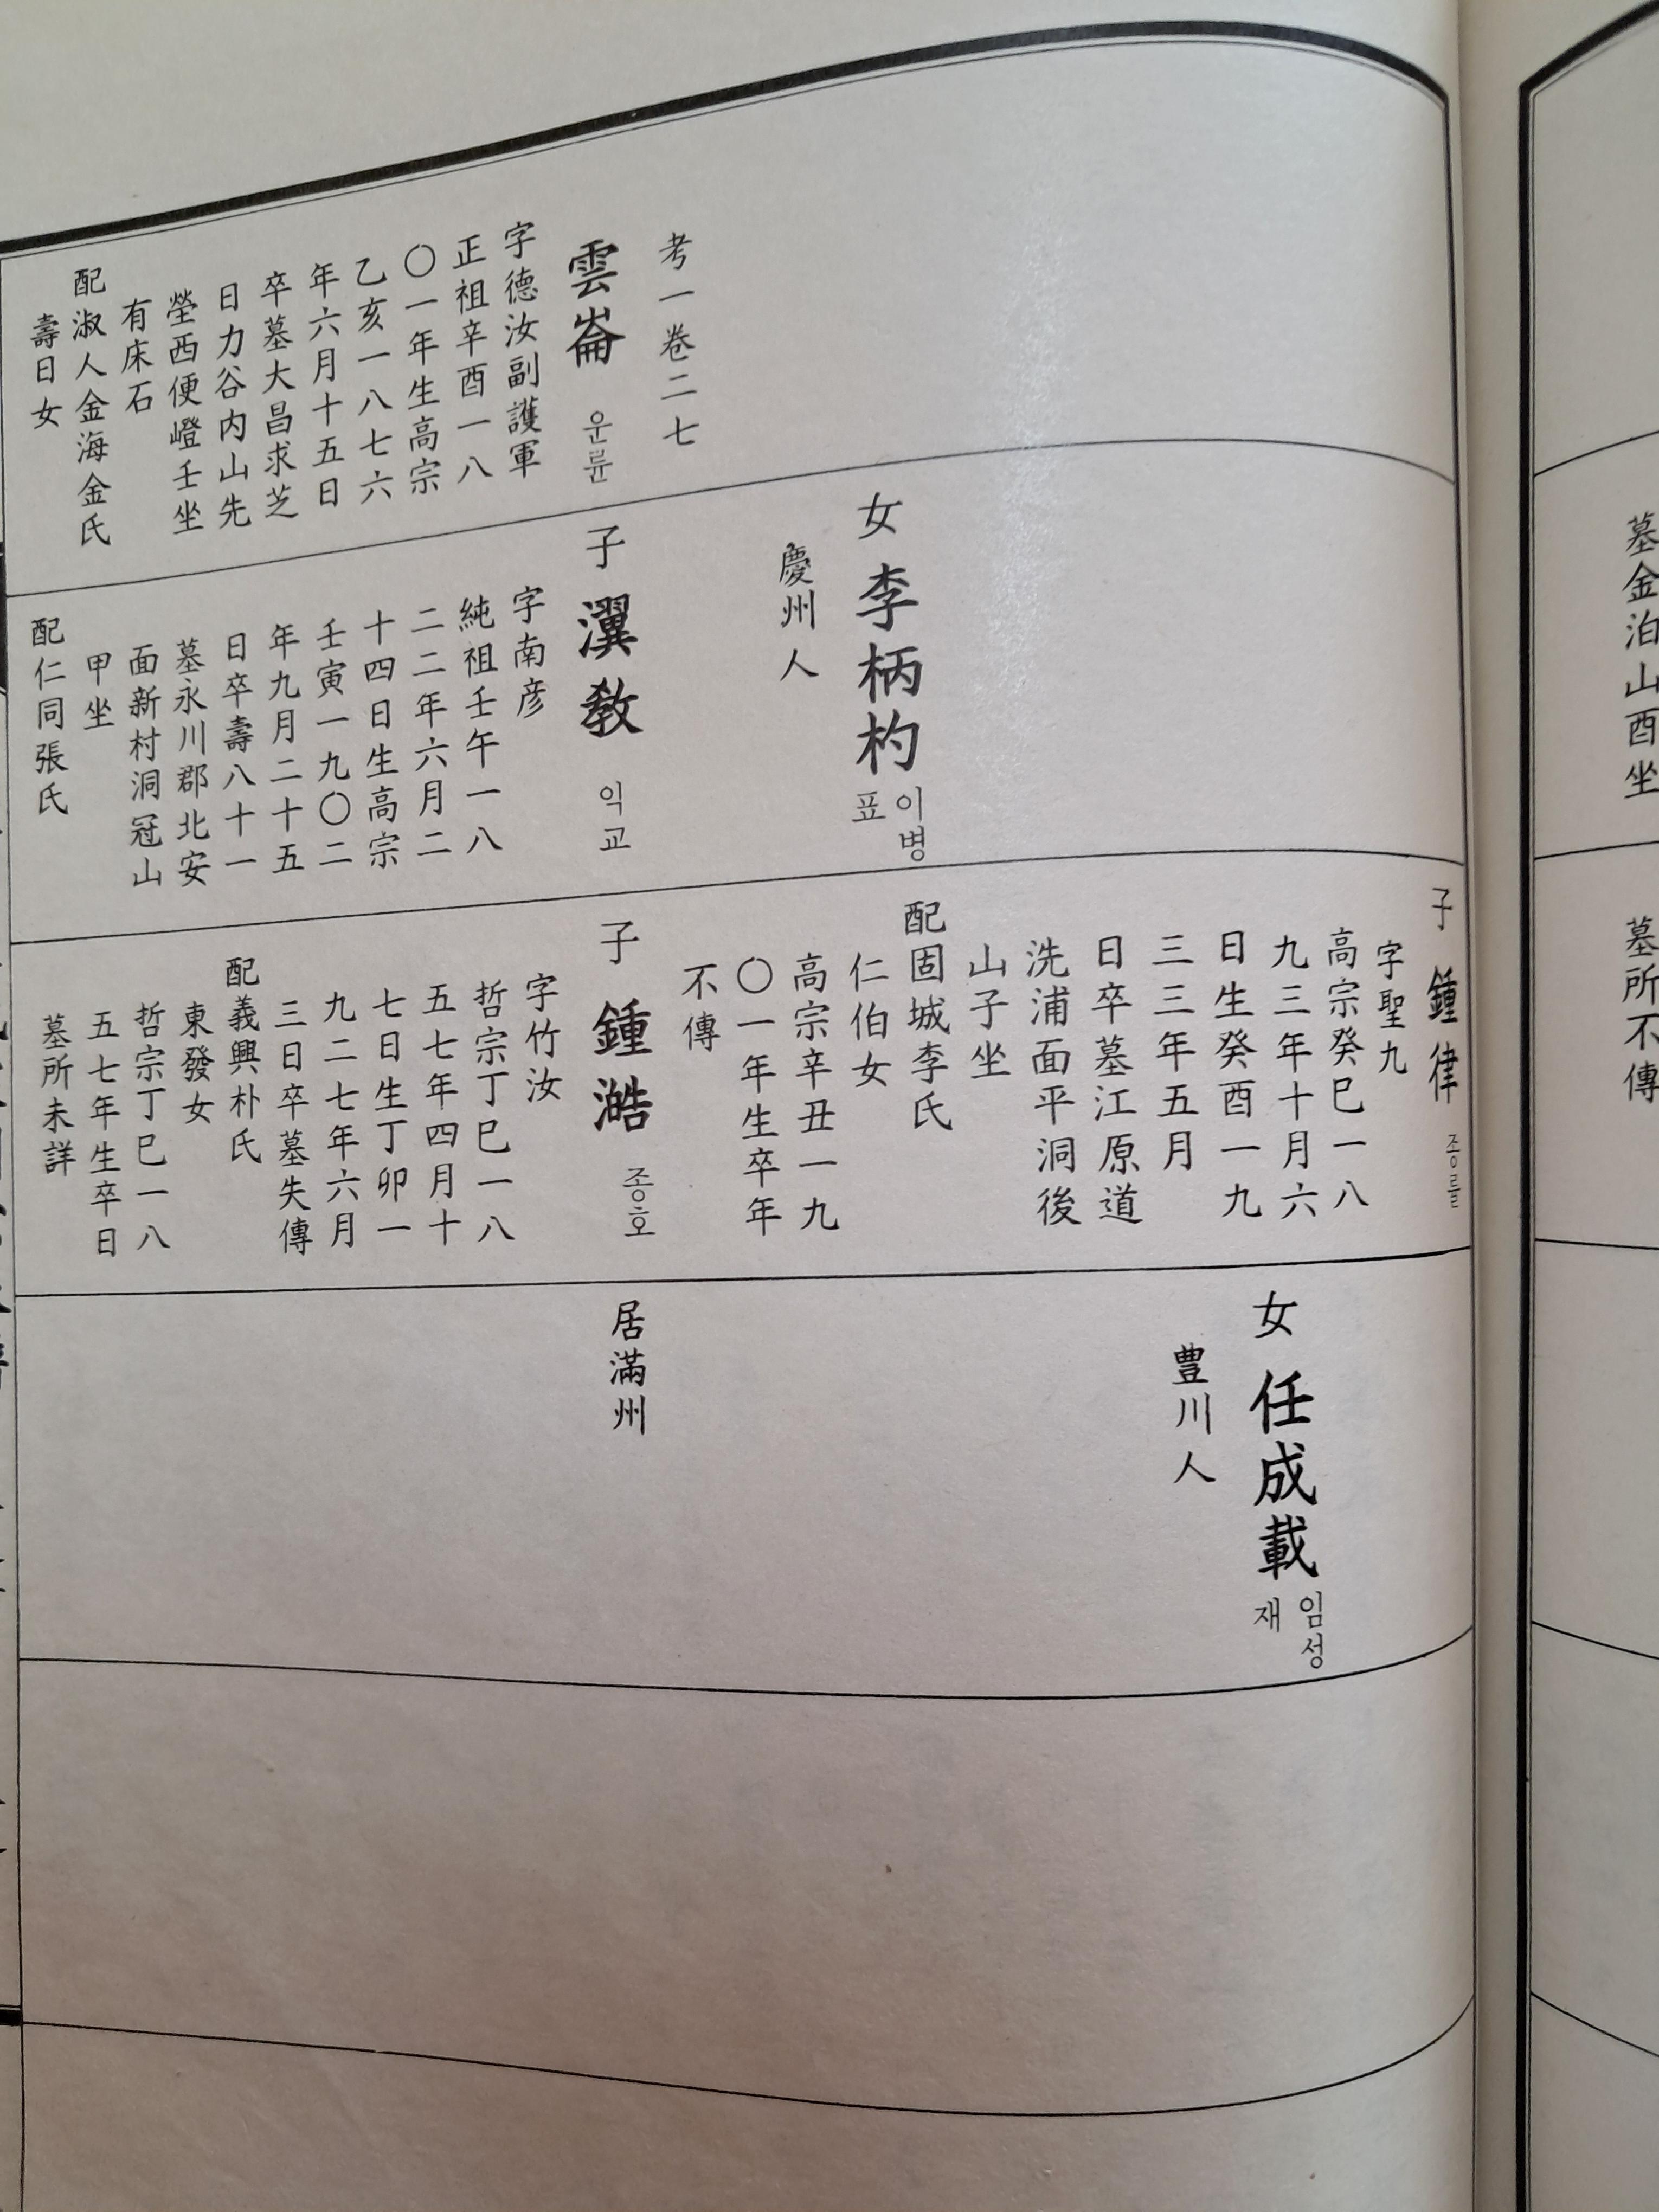 考一卷二七
雲崙 운륜
字德汝副護軍
正祖辛酉一八
〇一年生高宗
乙亥一八七六
年六月十五日
卒墓大昌求芝
日力谷内山先
塋西便嶝壬坐
有床石
配淑人金海金氏
壽日女
女 李柄杓 이병표
慶州人
子 瀷敎 익교
字南彦
純祖壬午一八
二二年六月二
十四日生高宗
壬寅一九〇二
年九月二十五
日卒壽八十一
墓永川郡北安
面新村洞冠山
甲坐
配仁同張氏
子 鍾律 종률
字聖九
高宗癸巳一八
九三年十月六
日生癸酉一九
三三年五月
日卒墓江原道
洗浦面平洞後
山子坐
配固城李氏
仁伯女
高宗辛丑一九
〇一年生卒年
不傳
子 鍾澔 종호
字竹汝
哲宗丁巳一八
五七年四月十
七日生丁卯一
九二七年六月
三日卒墓失傳
配義興朴氏
東發女
哲宗丁巳一八
五七年生卒日
墓所未詳
女 任成載 임성재
豊川人
居滿州
墓金泊山酉坐
墓所不傳